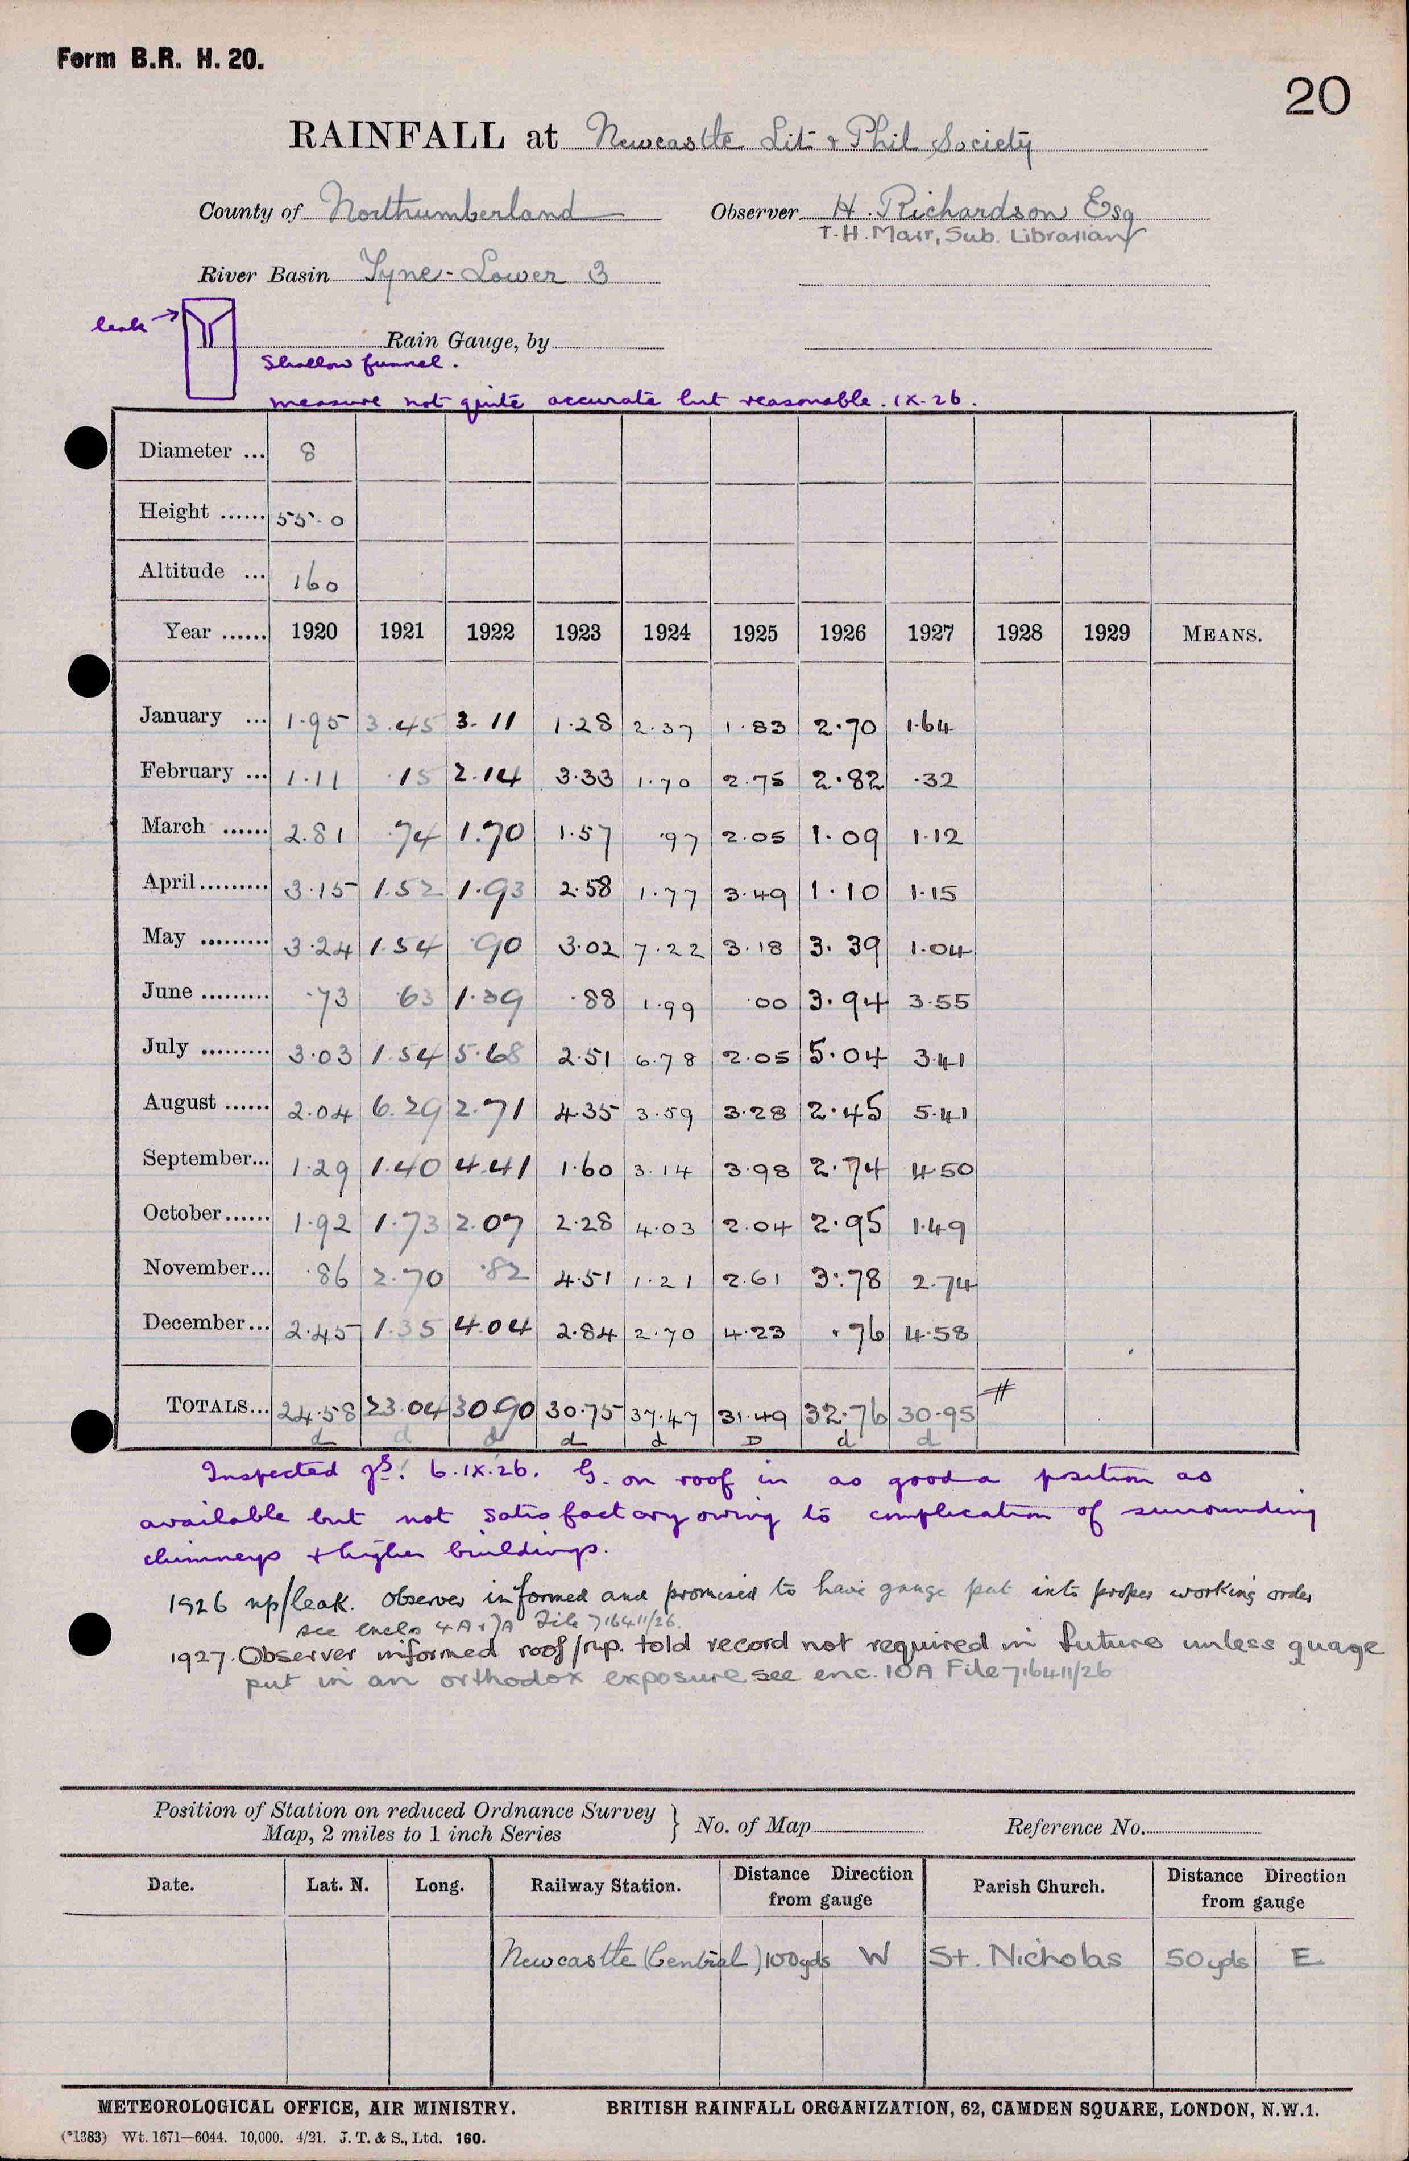 Form B.R. H. 20.
20
RAINFALL at Newcastle Lit & Phil Society
County of Northumberland Observer H. Richardson Esq
T.H. Marr, Sub. Librarian
River Basin Tyne - Lower 3
leak →
Rain Gauge, by
Shallow funnel.
measure not quite accurate but reasonable. IX.26.
Diameter ... 8
Height ...... 55.0
Altitude ... 160
Year ...... 1920 1921 1922 1923 1924 1925 1926 1927 1928 1929 MEANS.
January ... 1.95 3.45 3.11 1.28 2.37 1.83 2.70 1.64
February ... 1.11 .15 2.14 3.33 1.70 2.75 2.82 .32
March ...... 2.81 .74 1.70 1.57 .97 2.05 1.09 1.12
April ......... 3.15 1.52 1.93 2.58 1.77 3.49 1.10 1.15
May ......... 3.24 1.54 .90 3.02 7.22 3.18 3.39 1.04
June ......... .73 .63 1.39 .88 1.99 .00 3.94 3.55
July ......... 3.03 1.54 5.68 2.51 6.78 2.05 5.04 3.41
August ...... 2.04 6.29 2.71 4.35 3.59 3.28 2.45 5.41
September... 1.29 1.40 4.41 1.60 3.14 3.98 2.74 4.50
October...... 1.92 1.73 2.07 2.28 4.03 2.04 2.95 1.49
November... .86 2.70 .82 4.51 1.21 2.61 3.78 2.74
December... 2.45 1.35 4.04 2.84 2.70 4.23 .76 4.58
TOTALS... 24.58 23.04 30.90 30.75 37.47 31.49 32.76 30.95 #
d d d d d D d d
Inspected 6.IX.26. G. on roof in as good a position as
available but not satisfactory owing to complication of surrounding
chimneys & higher buildings.
1926 np/leak. Observer informed and promised to have gauge put into proper working order
see encls 4A & 7A File 716411/26.
1927. Observer informed roof/np. told record not required in future unless guage
put in an orthodox exposure see enc. 10A File 716411/26
Position of Station on reduced Ordnance Survey
Map, 2 miles to 1 inch Series } No. of Map Reference No.
Date. Lat. N. Long. Railway Station. Distance Direction from gauge Parish Church. Distance Direction from gauge
Newcastle (Central) 100yds W St. Nicholas 50yds E
METEOROLOGICAL OFFICE, AIR MINISTRY. BRITISH RAINFALL ORGANIZATION, 62, CAMDEN SQUARE, LONDON, N.W.1.
(*1383) Wt. 1671—6044. 10,000. 4/21. J. T. & S., Ltd. 160.